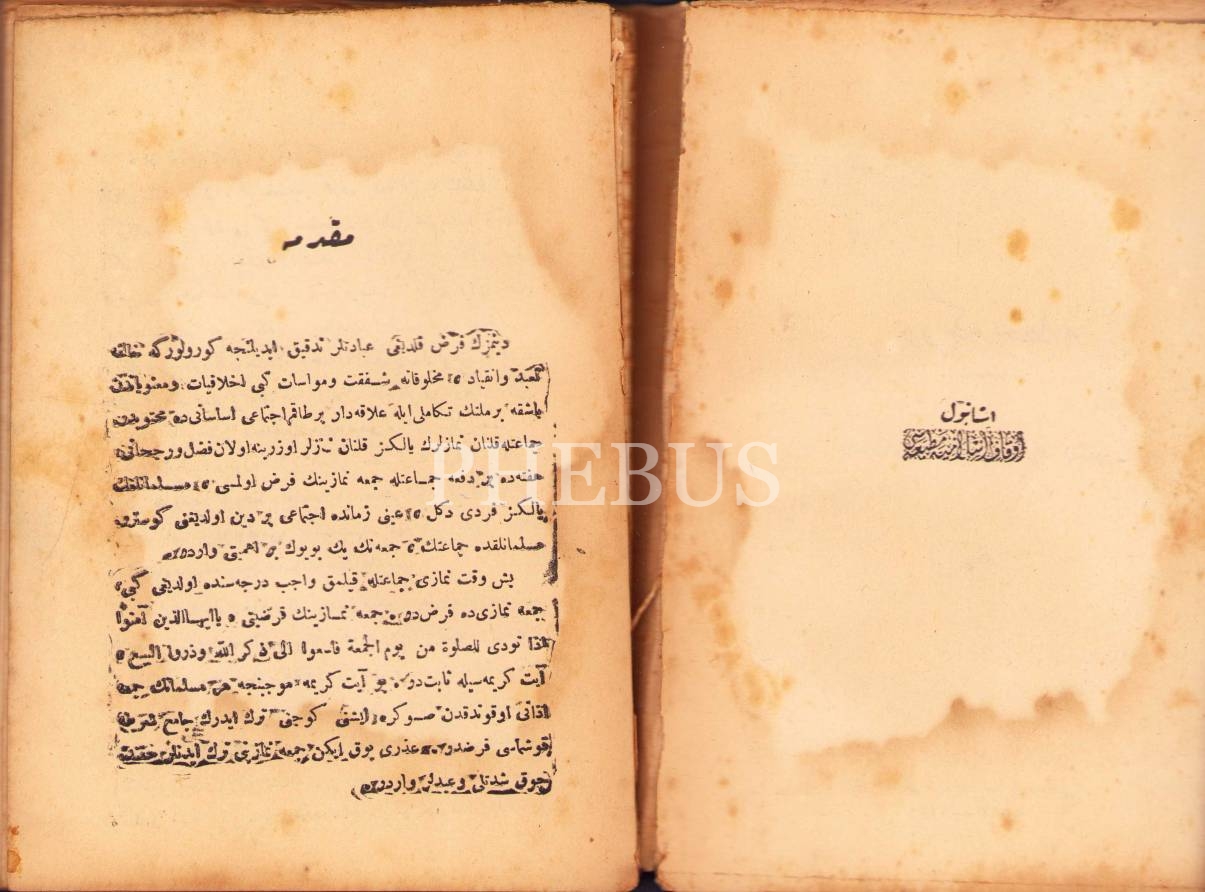 استانبول
اوقاف اسلامیه مطبعه سی
مقدمه
دینمزك فرض قلدیغی عبادتلر تدقیق ایدیلنجه كورولورکه خالقه
تعبد وانقیاد، مخلوقاته شفقت ومواسات كبی اخلاقیات ومعنویاتدن
باشقه بر ملتك تكاملی ایله علاقه دار بر طاقم اجتماعی اساساتی ده محتویدر.
جماعتله قلنان نمازلرك یالكز قلنان نمازلر اوزرینه اولان فضل ورجحانی،
هفته ده بر دفعه جماعتله جمعه نمازینك فرض اولمسی، مسلمانلغك
یالكز فردی دكل، عینی زمانده اجتماعی بر دین اولدیغنی كوسترر.
مسلمانلقده جماعتك، جمعه نك پك بویوك بر اهمیتی واردر.
بش وقت نمازی جماعتله قیلمق واجب درجه سنده اولدیغی كبی،
جمعه نمازی ده فرض در. جمعه نمازینك فرضیتی، یا ایها الذین آمنوا
اذا نودی للصلوة من یوم الجمعة فاسعوا الی ذكر الله وذروا البیع،
آیت كریمه سیله ثابت در. بو آیت كریمه موجبنجه هر مسلمانك جمعه
اذانی اوقوندقدن صوكره، ایشنی كوجنی ترك ایدرك جامع شریفه
قوشماسی فرضدر. عذری یوق ایكن جمعه نمازینی ترك ایدنلر حقنده
چوق شدتلی وعیدلر واردر.
PHEBUS